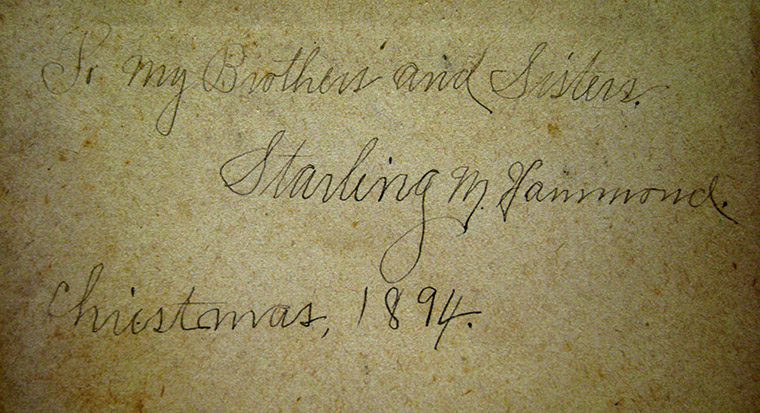 To my Brothers and Sisters.
Starling M. Hammond.
Christmas, 1894.